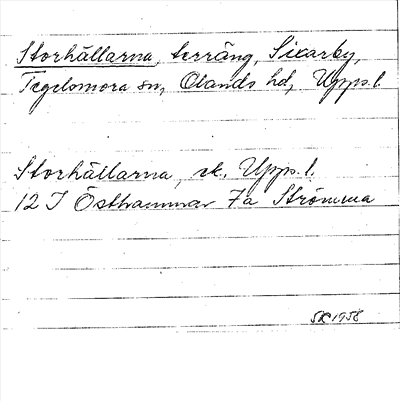 Storhällarna, terräng, Sixarby,
Tegelsmora sn, Olands hd, Upps.l.
Storhällarna, ek. Upps.l.
12 I Östhammar 7a Strömma
SK 1958